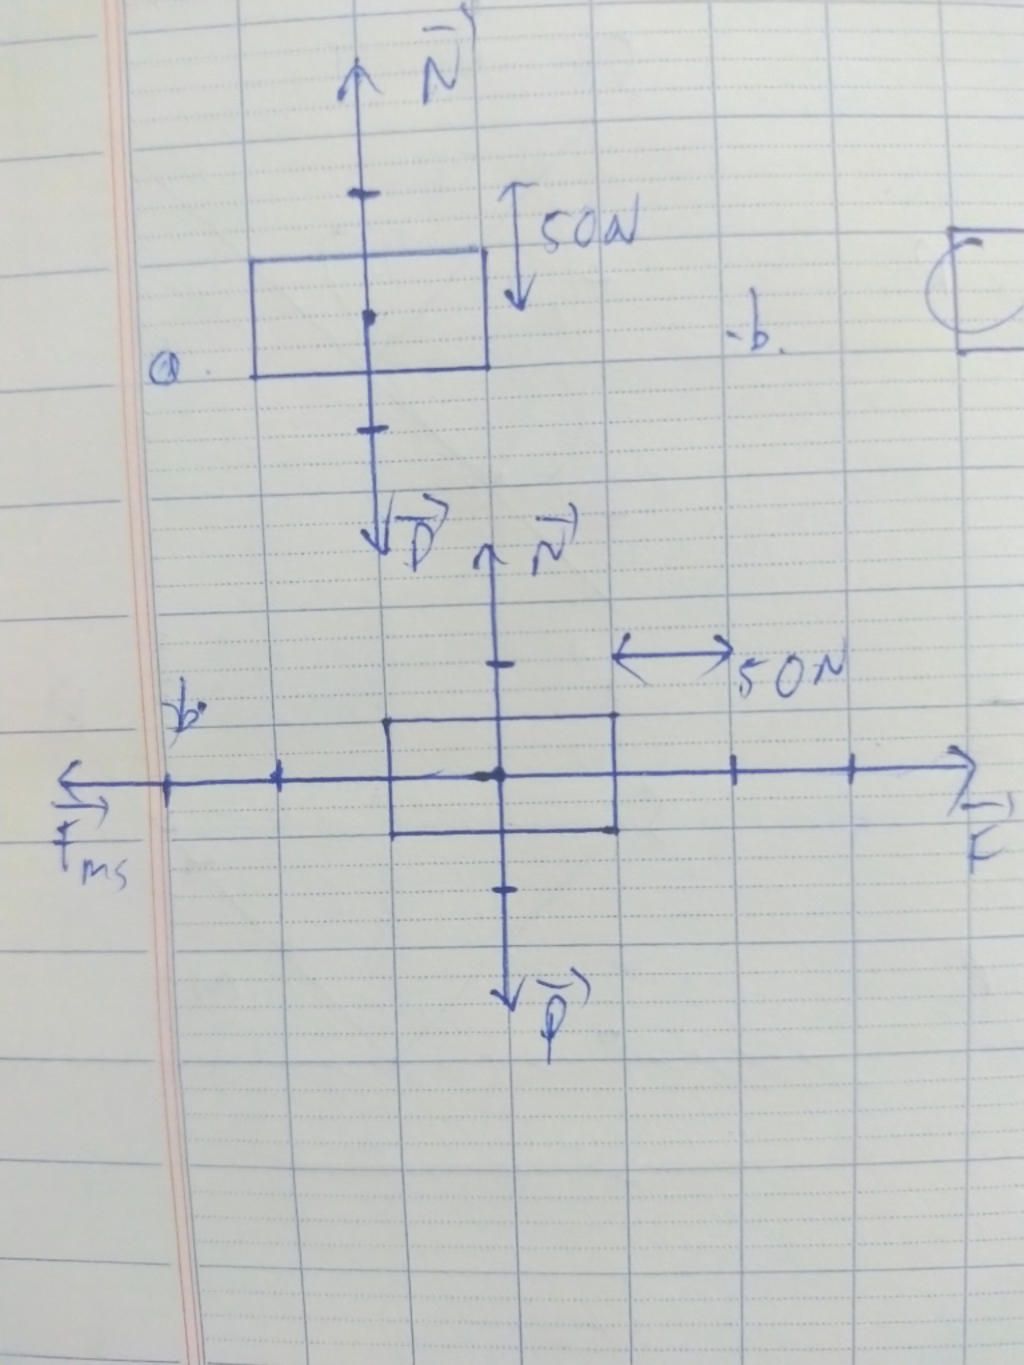 N
50N
a.
b.
P
N
50N
b.
Fms
F
P